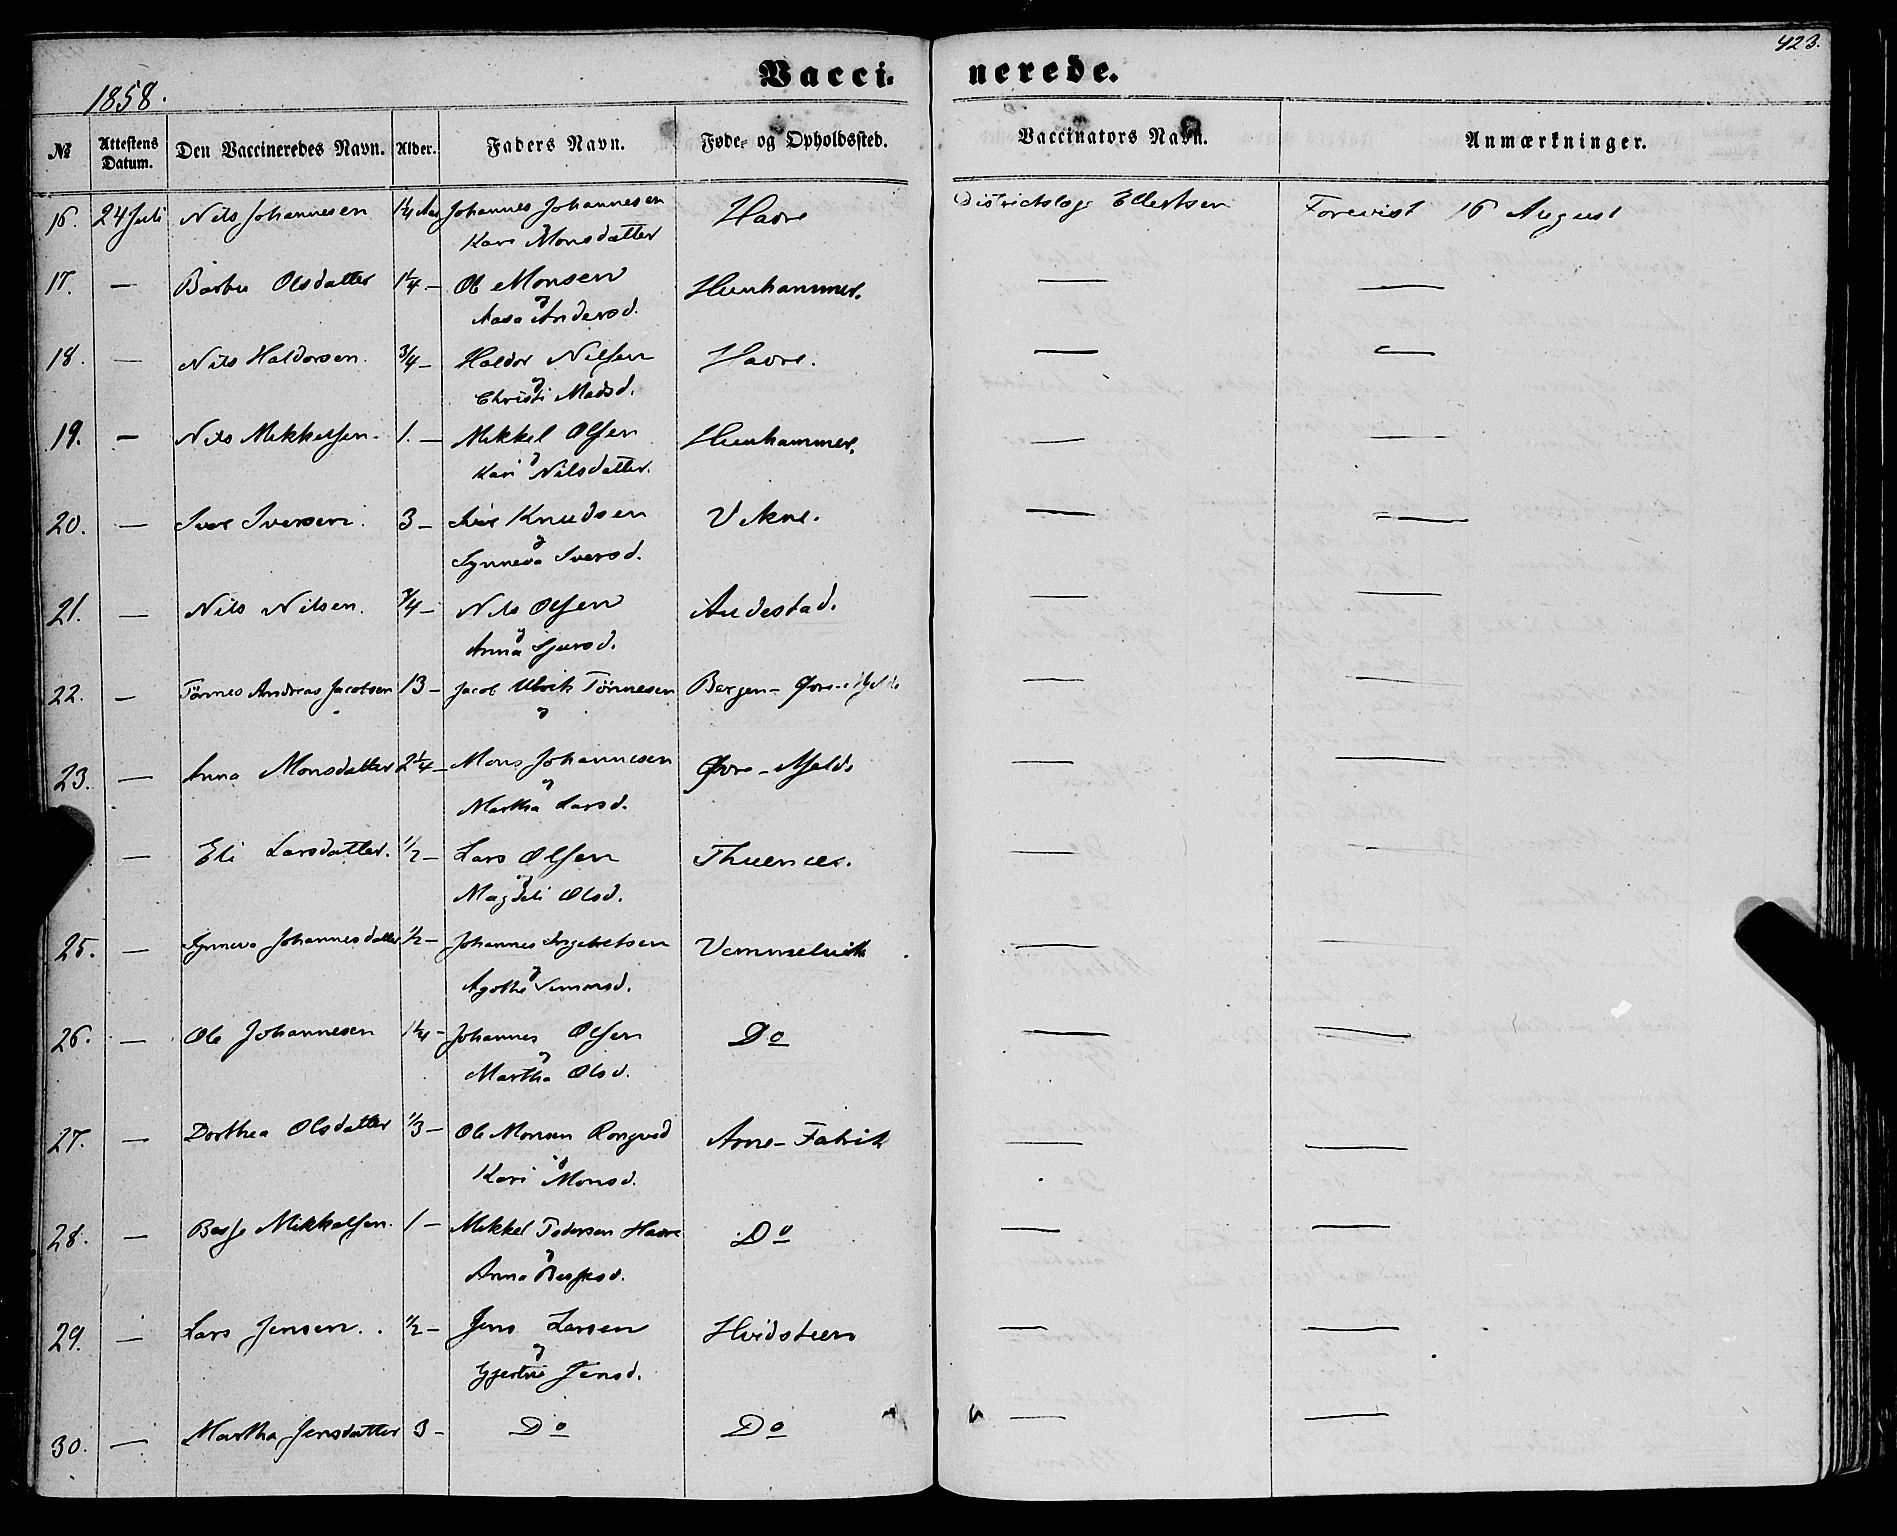 423.
Vacci- nerede.
1858.
№ Attestens Datum. Den Vaccineredes Navn. Alder. Faders Navn. Føde- og Opholdssted. Vaccinators Navn. Anmærkninger.
16. 24 Juli Nils Johannesen 1¼ Aar Johannes Johannesen Havre Districtslæge Ellertsen Forevist 16 August
Kari Monsdatter
17. — Olsdatter 1¼ — Ole Monsen — —
og
Andersd.
18. — Nils Haldorsen. ¾ — Haldor Nilsen Havre. — —
og
Christi Madsd.
19. — Nils Mikkelsen. 1. — Mikkel Olsen — —
og
Kari Nilsdatter.
20. — Iver Iversen. 3 — Iver Knudsen — —
og
Synneva Iversd.
21. — Nils Nilsen. ¾ — Nils Olsen — —
og
Anna Sjursd.
22. — Tönnes Andreas Jacobsen 13 — Jacob Ulrich Tönnesen Bergen — — —
og
23. — Anna Monsdatter 2¼ — Mons Johannesen Øvre-Mjelde — —
og
Martha Larsd.
— Eli Larsdatter. ½ — Lars Olsen — —
og
Magdeli Olsd.
25. — Synneva Johannesdatter ½ — Johannes Ingebretsen — —
og
Agothe Simonsd.
26. — Ole Johannesen 1¼ — Johannes Olsen Do — —
og
Martha Olsd.
27. — Dorthea Olsdatter ⅓ — Ole Monsen Arne-Fabrik — —
og
Kari Monsd.
28. — Mikkelsen. 1 — Mikkel Pedersen Havre Do — —
og
Anna
29. — Lars Jensen. ½ — Jens Larsen Hvidsteen — —
og
Jensd.
30. — Martha Jensdatter 3 — Do Do — —